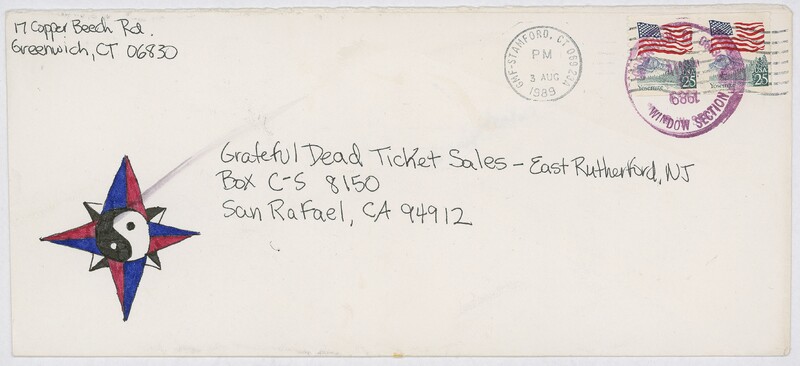 17 Copper Beech Rd.
Greenwich, CT 06830
GMF-STAMFORD, CT 069
PM
3 AUG
1989
USA
25
Yosemite
USA
25
Yosemite
1989
WINDOW SECTION
Grateful Dead Ticket Sales – East Rutherford, NJ
Box C-S 8150
San Rafael, CA 94912